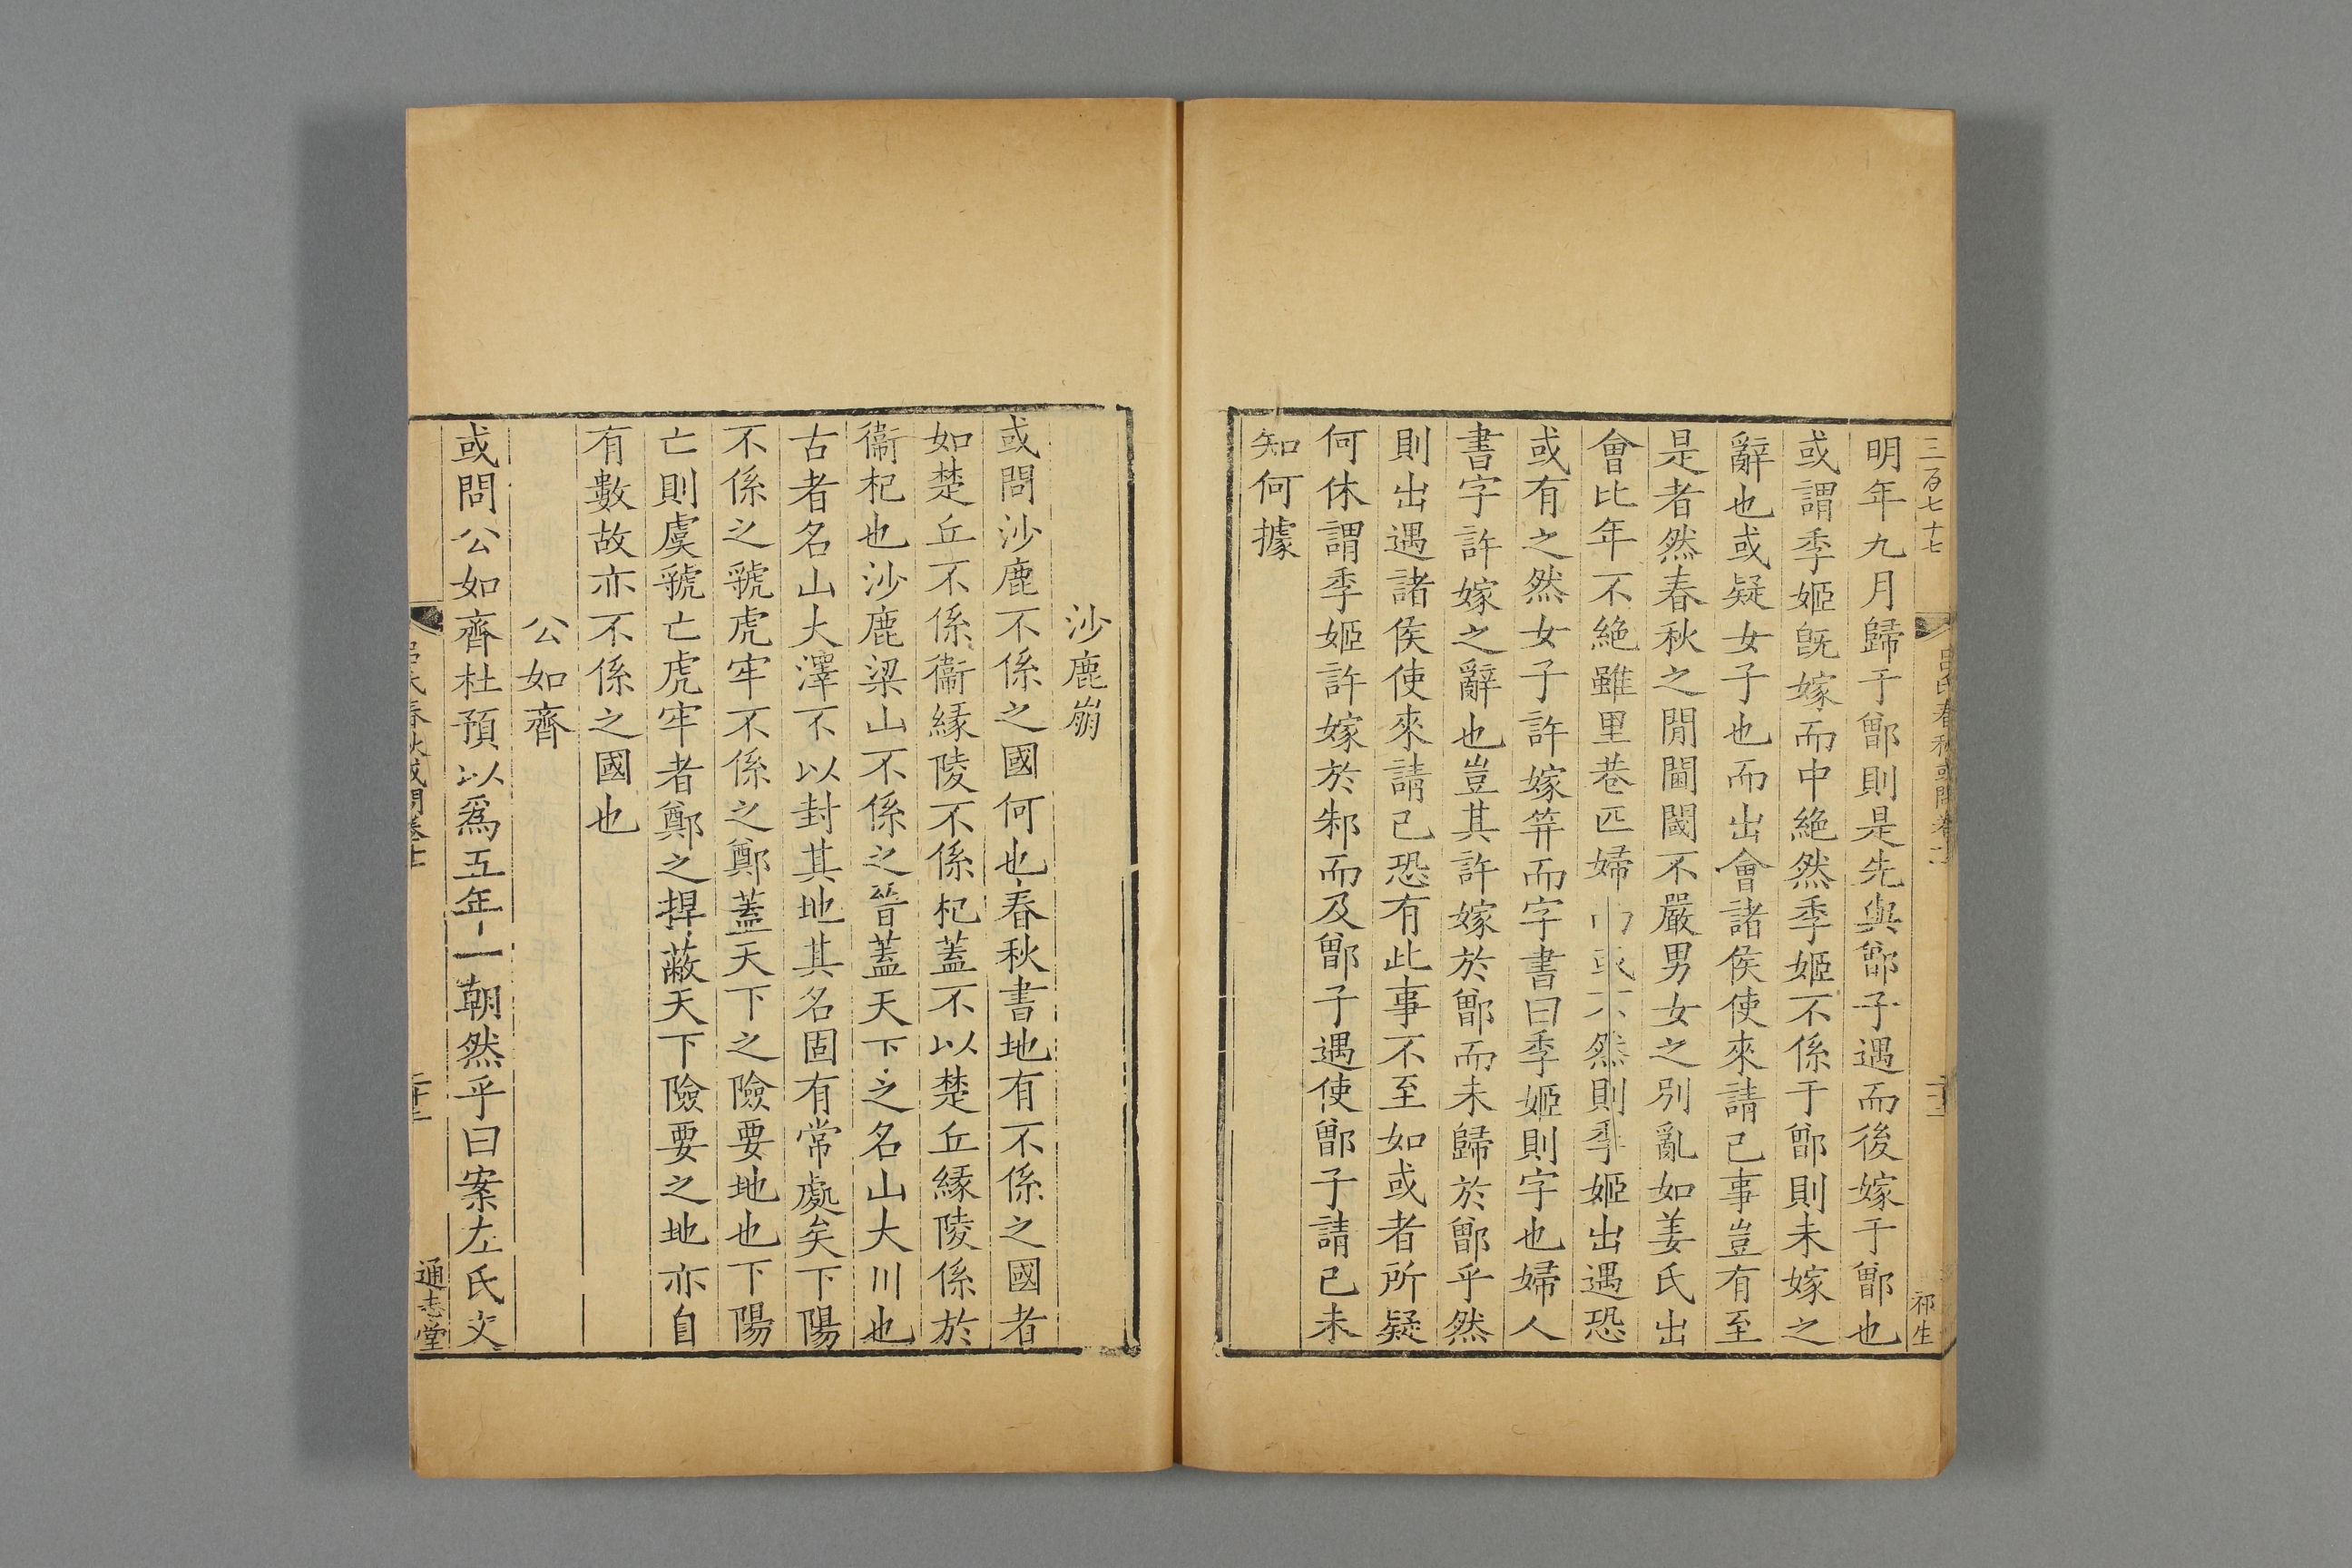 三百七十七
祁生
明年九月歸于鄫則是先與鄫子遇而後嫁于鄫也
或謂季姬旣嫁而中絶然季姬不係于鄫則未嫁之
辭也或疑女子也而出會諸侯使來請己事豈有至
是者然春秋之閒閫閾不嚴男女之別亂如姜氏出
會比年不絶雖里巷匹婦不然則季姬出遇恐
或有之然女子許嫁笄而字書曰季姬則字也婦人
書字許嫁之辭也豈其許嫁於鄫而未歸於鄫乎然
則出遇諸侯使來請己恐有此事不至如或者所疑
何休謂季姬許嫁於邾而及鄫子遇使鄫子請己未
知何據
沙鹿崩
或問沙鹿不係之國何也春秋書地有不係之國者
如楚丘不係衞緣陵不係杞蓋不以楚丘緣陵係於
衞杞也沙鹿梁山不係之晉蓋天下之名山大川也
古者名山大澤不以封其地其名固有常處矣下陽
不係之虢虎牢不係之鄭蓋天下之險要地也下陽
亡則虞虢亡虎牢者鄭之捍蔽天下險要之地亦自
有數故亦不係之國也
公如齊
或問公如齊杜預以爲五年一朝然乎曰案左氏文
呂氏春秋或問卷十
通志堂